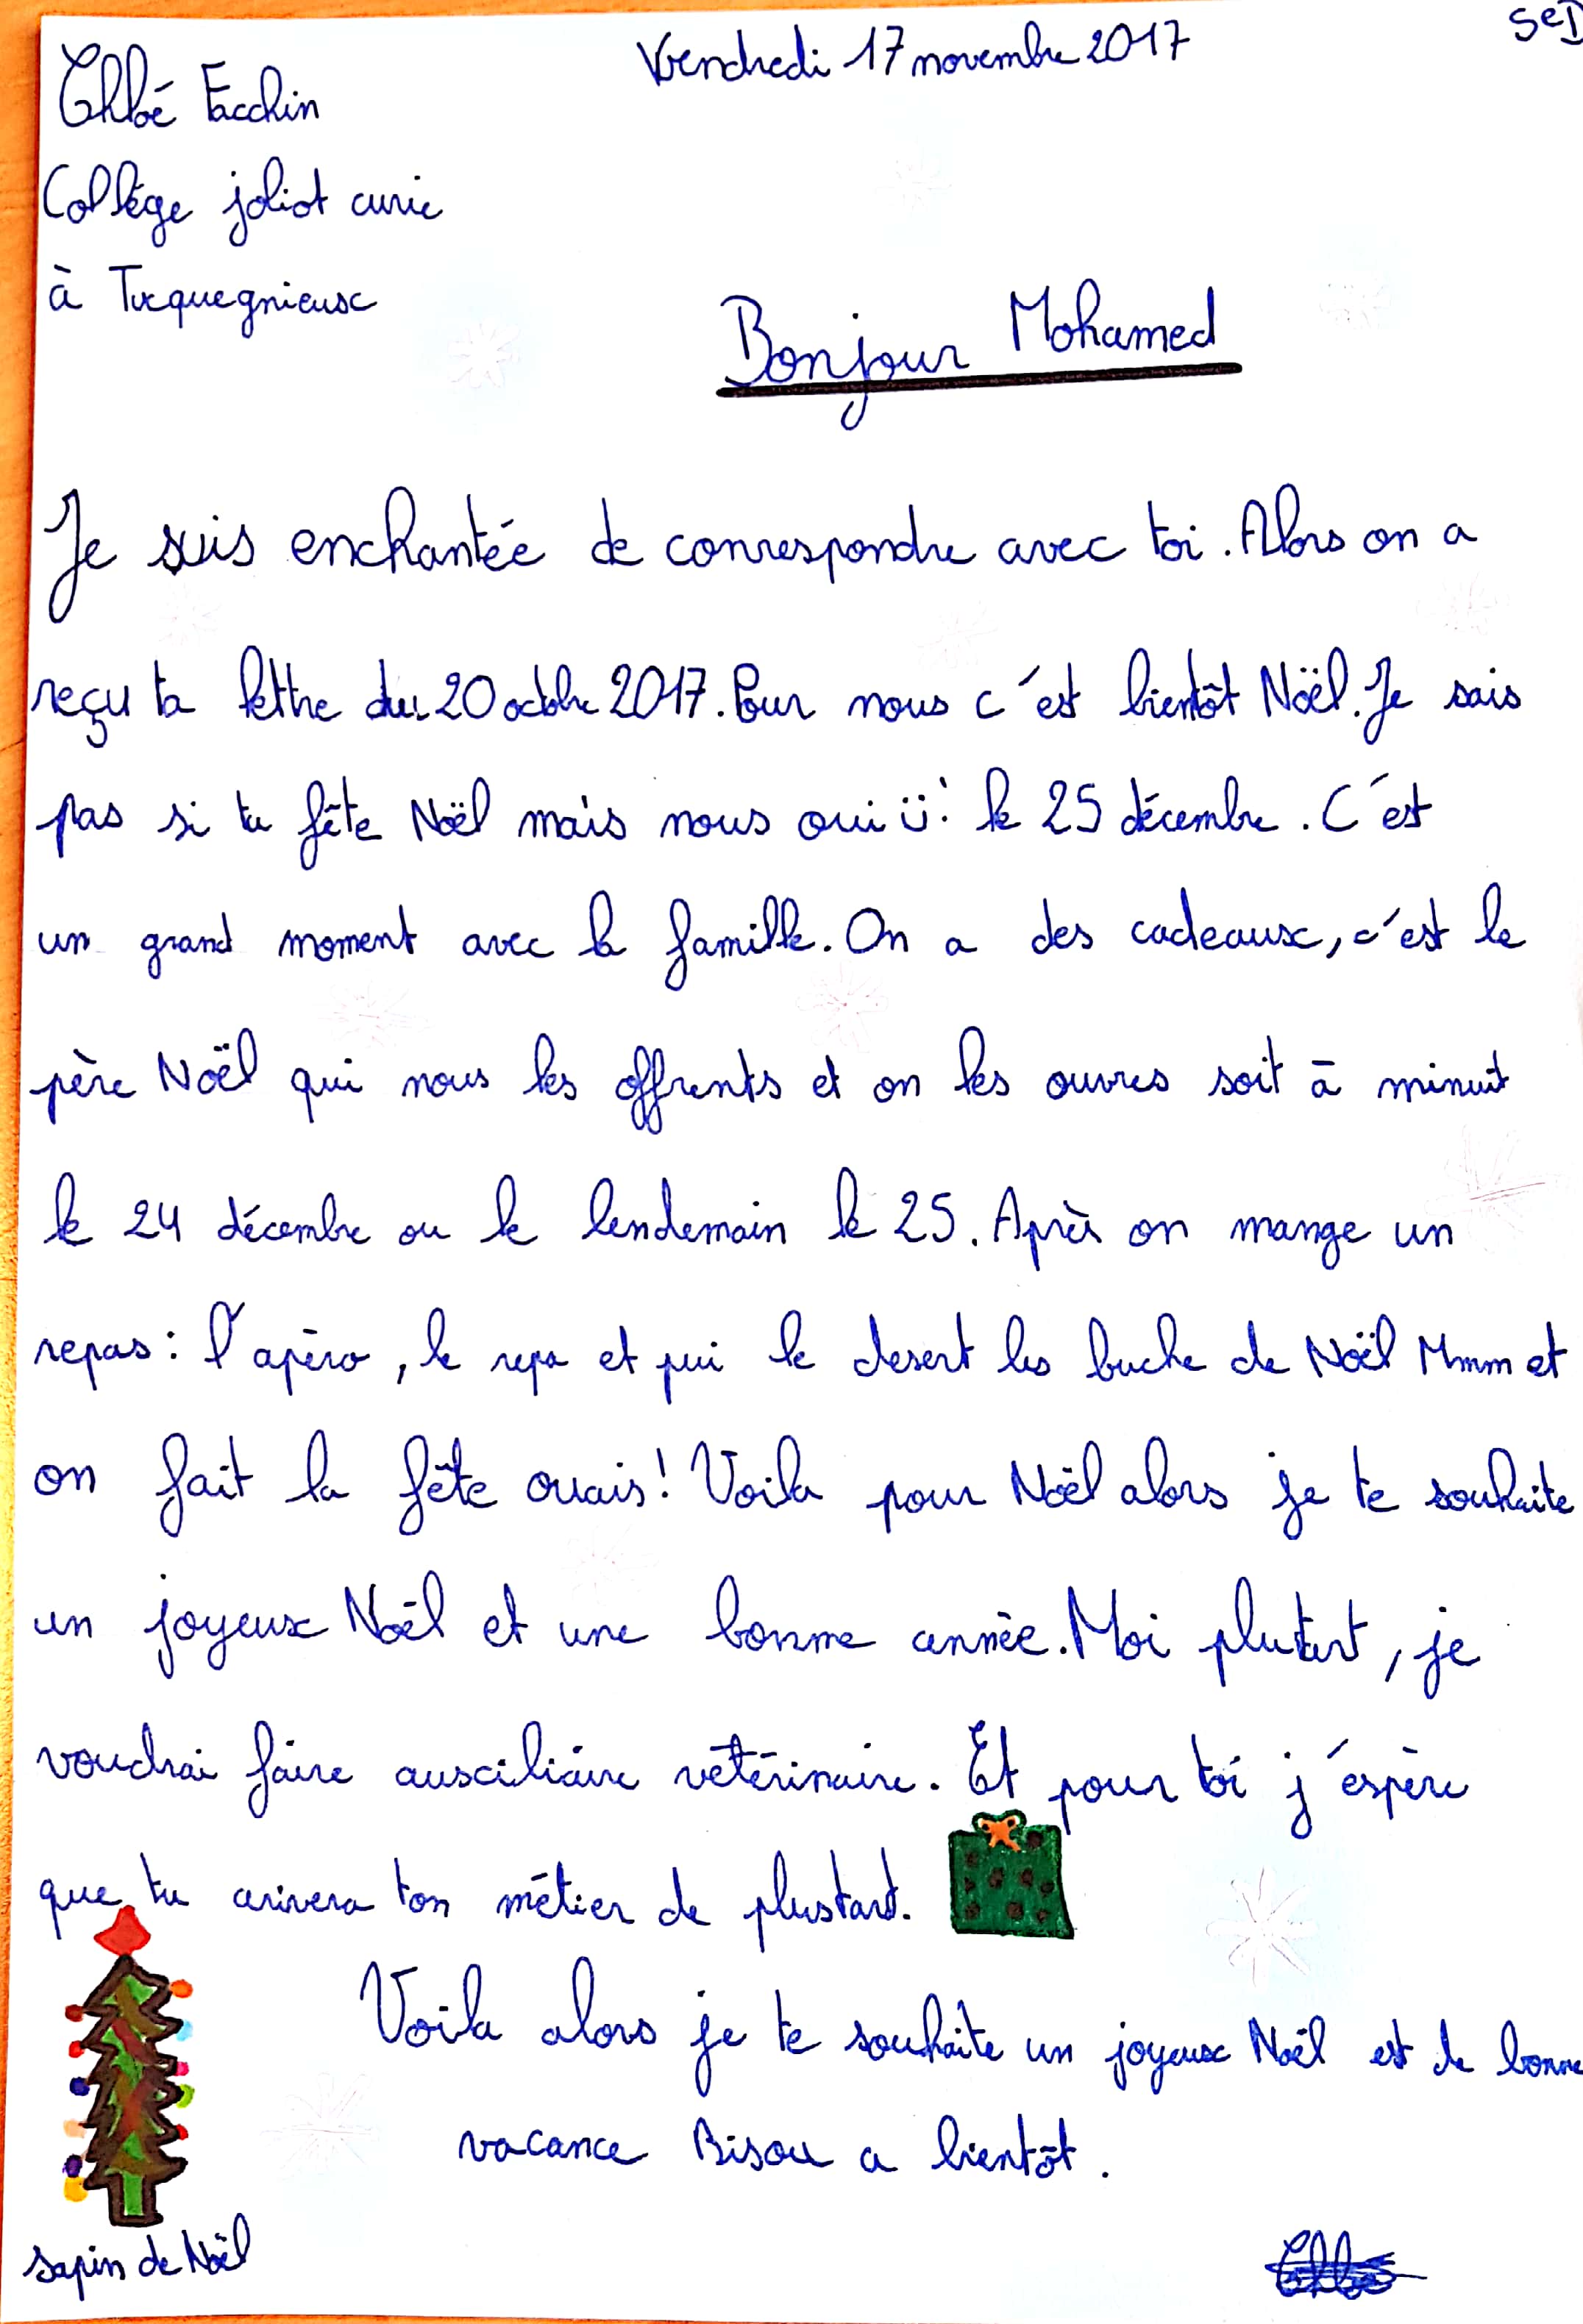 Vendredi 17 novembre 2017
5eD
Chloé Facchin
Collège joliot curie
à Tucquegnieux
Bonjour Mohamed
Je suis enchantée de correspondre avec toi. Alors on a
reçu ta lettre du 20 octobre 2017. Pour nous c'est bientôt Noël. Je sais
pas si tu fête Noël mais nous oui le 25 décembre. C'est
un grand moment avec la famille. On a des cadeaux, c'est le
père Noël qui nous les offrents et on les ouvres soit à minuit
le 24 décembre ou le lendemain le 25. Après on mange un
repas : l'apéro, le repa et pui le desert les buche de Noël Mmm et
on fait la fête ouais! Voila pour Noël alors je te souhaite
un joyeux Noël et une bonne année. Moi plutart, je
voudrai faire auxciliaire vétérinaire. Et pour toi j'espère
que tu arivera ton métier de plustard.
Voila alors je te souhaite un joyeux Noël est de bonne
vacance Bisou a bientôt.
sapin de Noël
Chloé